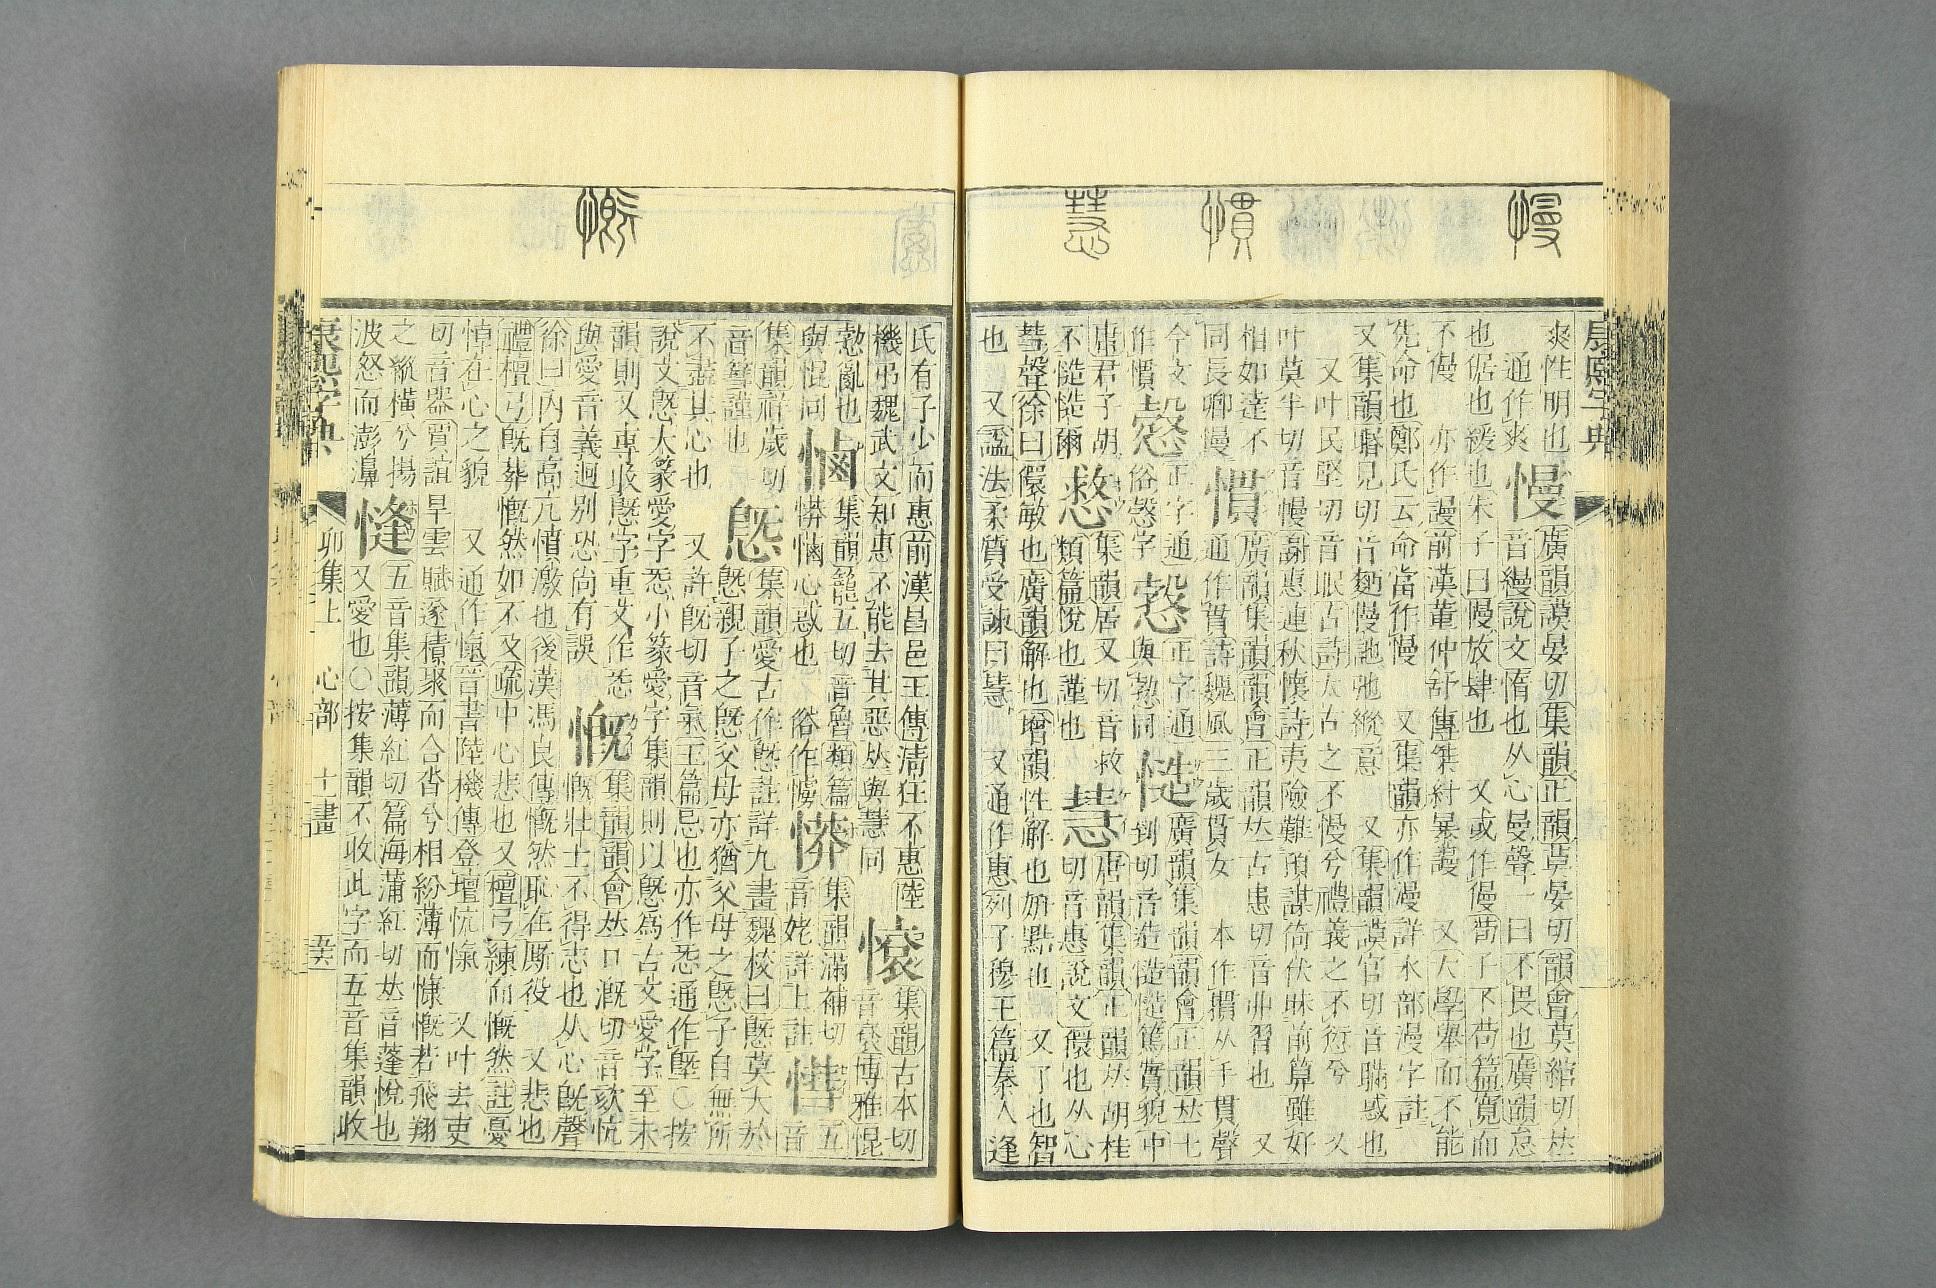 慢
慣
慧
康熙字典
爽性明也
通作爽
慢
廣韻謨晏切集韻正韻莫晏切韻會莫綰切𠀤
音縵說文惰也从心曼聲一曰不畏也廣韻怠
也倨也緩也朱子曰慢放肆也　又或作僈荀子不苟篇寬而
不慢　亦作謾前漢董仲舒傳桀紂暴謾　又大學舉而不能
先命也鄭氏云命當作慢　又集韻亦作漫詳水部漫字註
又集韻見切片麪慢訑弛縱意　又集韻謨官切音瞞惑也
又叶民堅切音眠古詩太古之不慢兮禮義之不愆兮　又
叶莫半切音幔謝惠連秋懷詩夷險難預謀倚伏昧前算雖好
相如達不
同長卿慢
慣
廣韻集韻韻會正韻𠀤古患切音丱習也　又
通作貫詩魏風三歲貫女　本作摜从手貫聲
今文
作慣
正字通
俗愨字
正字通
與愨同
慥
廣韻集韻韻會正韻𠀤七
到切音造慥慥篤實貌中
庸君子胡
不慥慥爾
慦
集韻居又切音救
類篇悅也謹也
慧
唐韻集韻正韻𠀤胡桂
切音惠說文儇也从心
彗聲徐曰儇敏也廣韻解也增韻性解也妍黠也　又了也智
也　又諡法柔質受諫曰慧　又通作惠列子穆王篇秦人逢
慨
氏有子少而惠前漢昌邑王傳淸狂不惠陸
機弔魏武文知惠不能去其惡𠀤與慧同
集韻古本切
音袞博雅悃
亂也
與悃同
集韻籠五切音魯類篇
心惑也　俗作
集韻滿補切
音姥詳上註
五
音
集韻祥歲切
音篲謹也
集韻愛古作㤅註詳九畫魏校曰㤅莫大於
㤅親子之㤅父母亦猶父母之㤅子自無所
不盡其心也　又許旣切音氣玉篇息也亦作㤅通作墍○按
說文㤅大篆愛字㤅小篆愛字集韻則以㤅爲古文愛字至未
韻則又專收㤅字重文作㤅
與愛音義迥別恐尚有誤
慨
集韻韻會𠀤口漑切音欬忼
慨壯士不得志也从心旣聲
徐曰內自高亢憤激也後漢馮良傳慨然恥在厮役　又悲也
禮檀弓旣葬慨然如不及疏中心悲也又檀弓練而慨然註憂
悼在心之貌　又通作愾晉書陸機傳登壇忼愾　又叶去吏
切音器賈誼旱雲賦遂積聚而合沓兮相紛薄而慷慨若飛翔
之縱橫兮揚
波怒而澎濞
五音集韻薄紅切篇海蒲紅切𠀤音蓬悅也
又愛也○按集韻不收此字而五音集韻收
康熙字典
卯集上　心部　十一畫